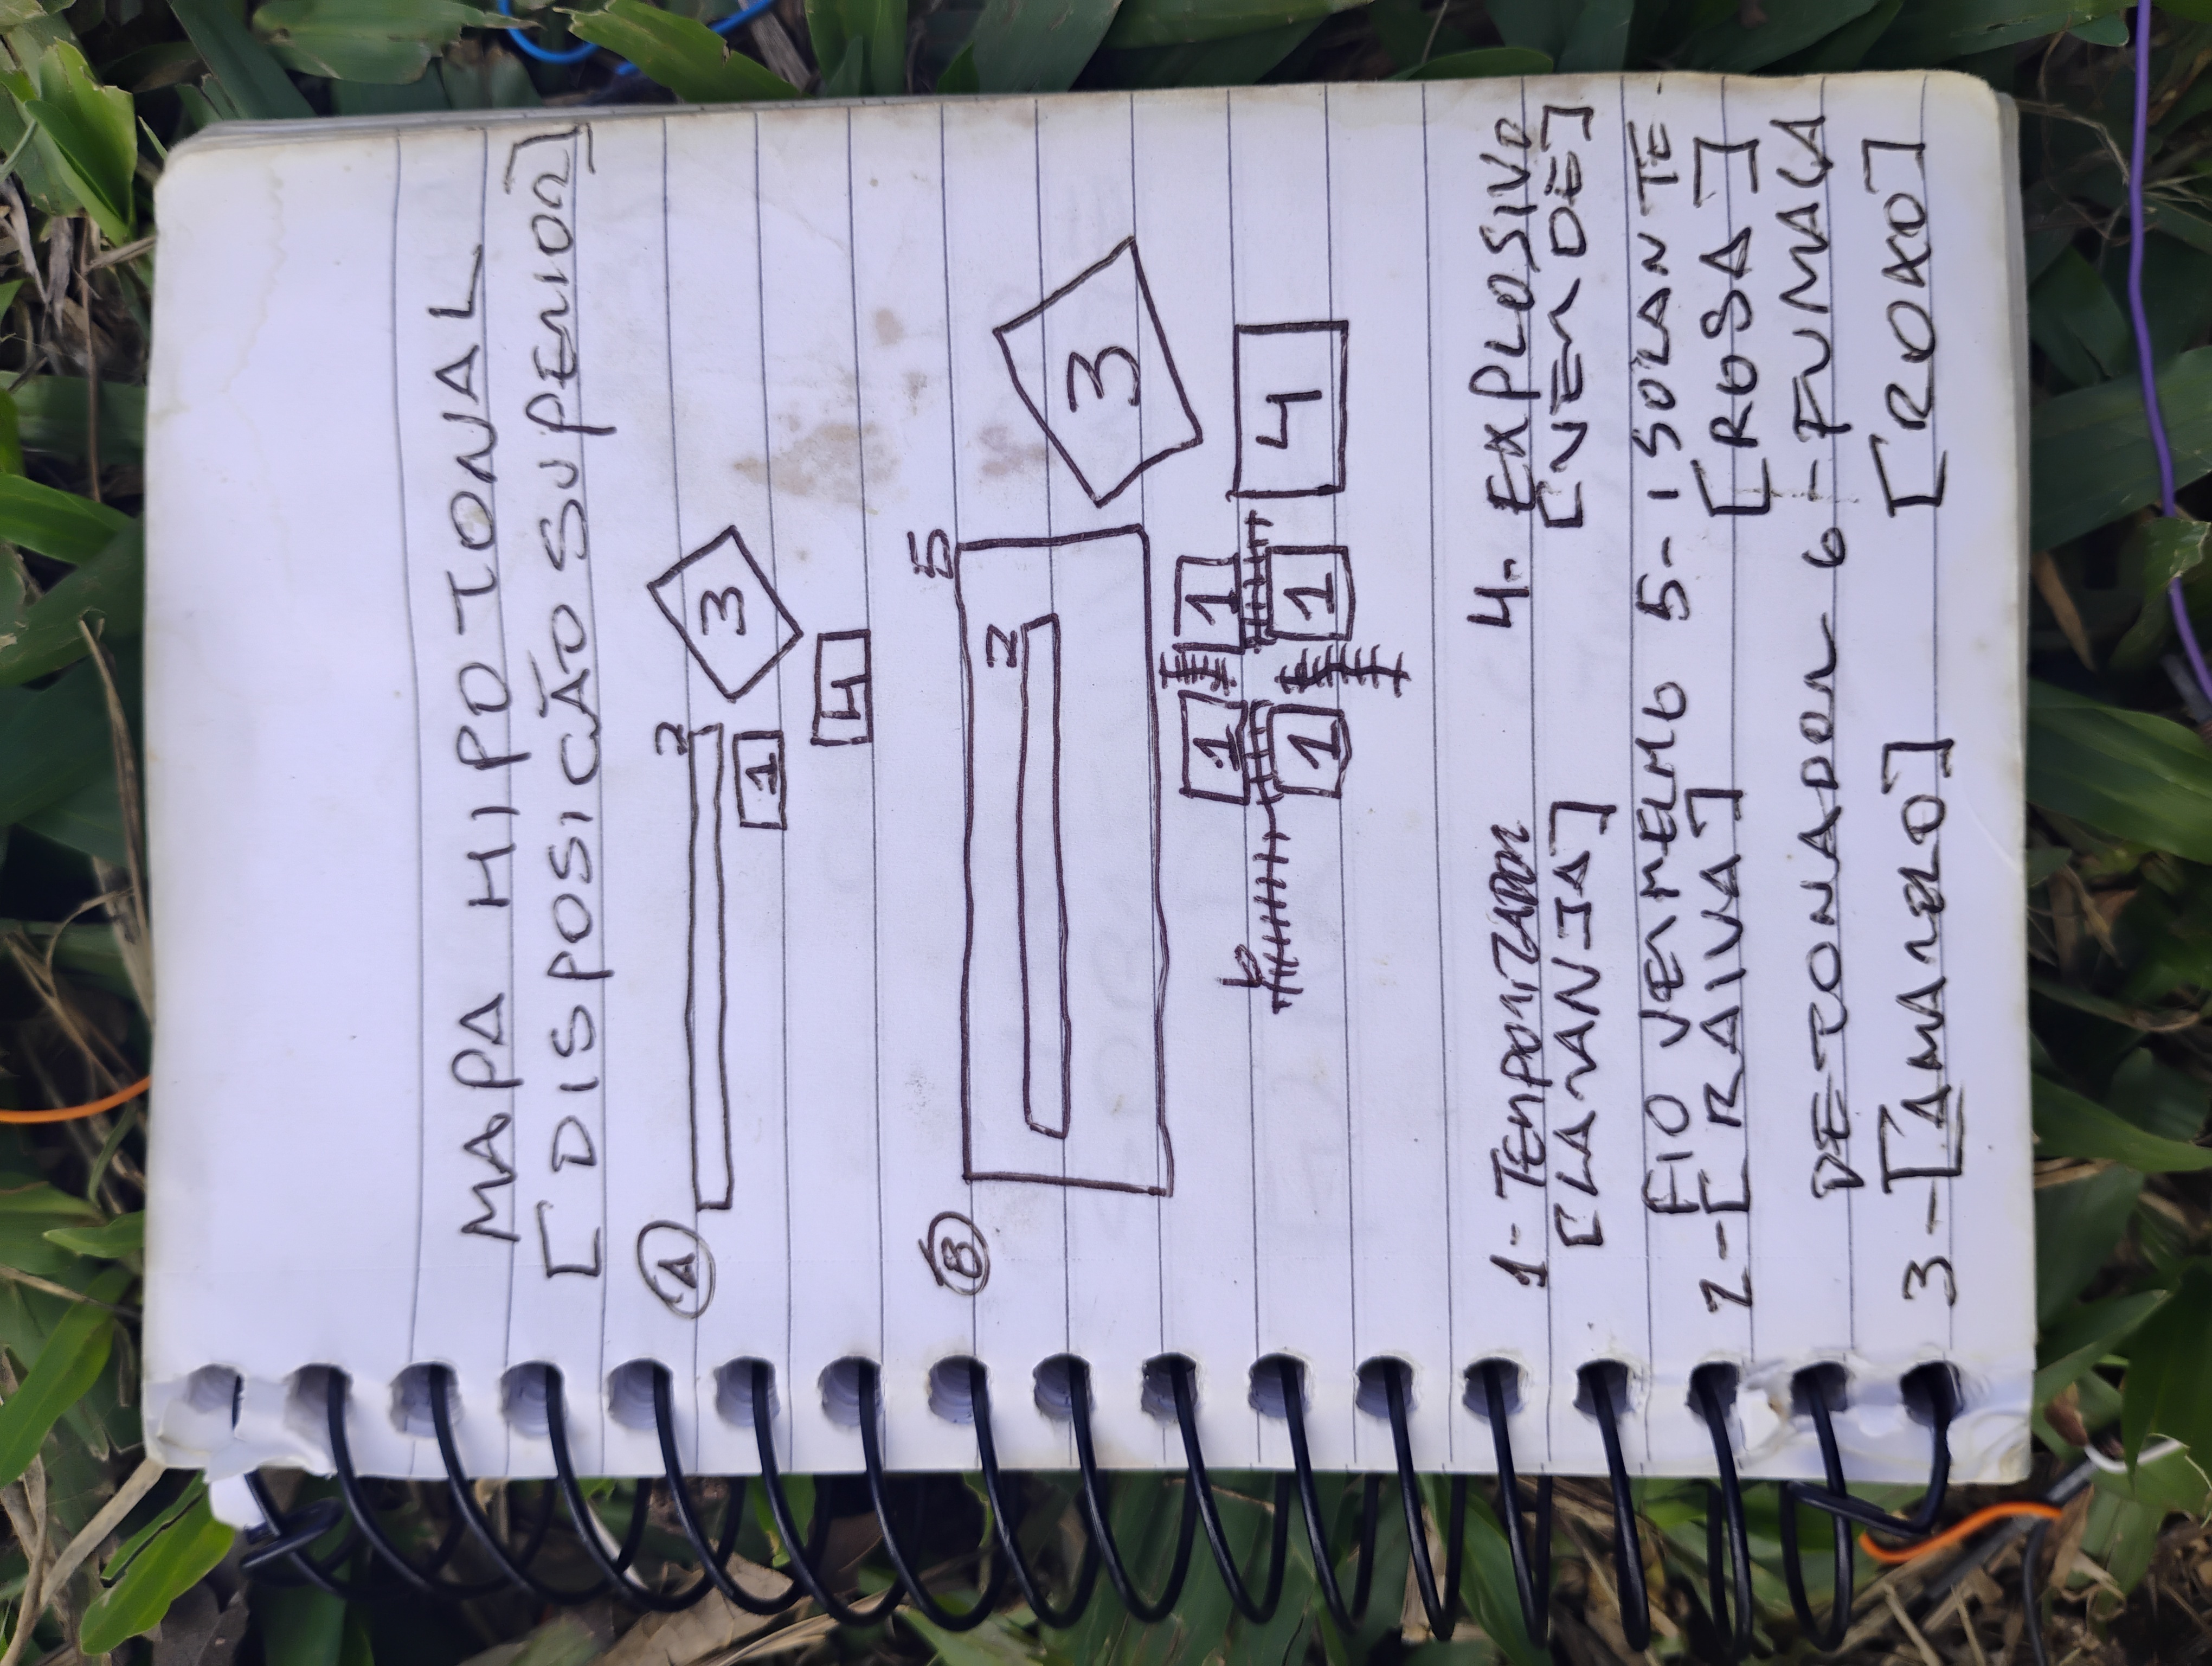 MAPA HIPOTONAL
[DISPOSICÃO SUPERIOR]
A
2
3
1
4
B
5
2
3
1 1
4
1 1
6
1- TEMPORIZADOR
[LARANJA]
4- EXPLOSIVO
[VERDE]
FIO VERMELHO
2-[RAIVA]
5- ISOLANTE
[ROSA]
DETONADOR
3-[AMARELO]
6-FUMAÇA
[ROXO]